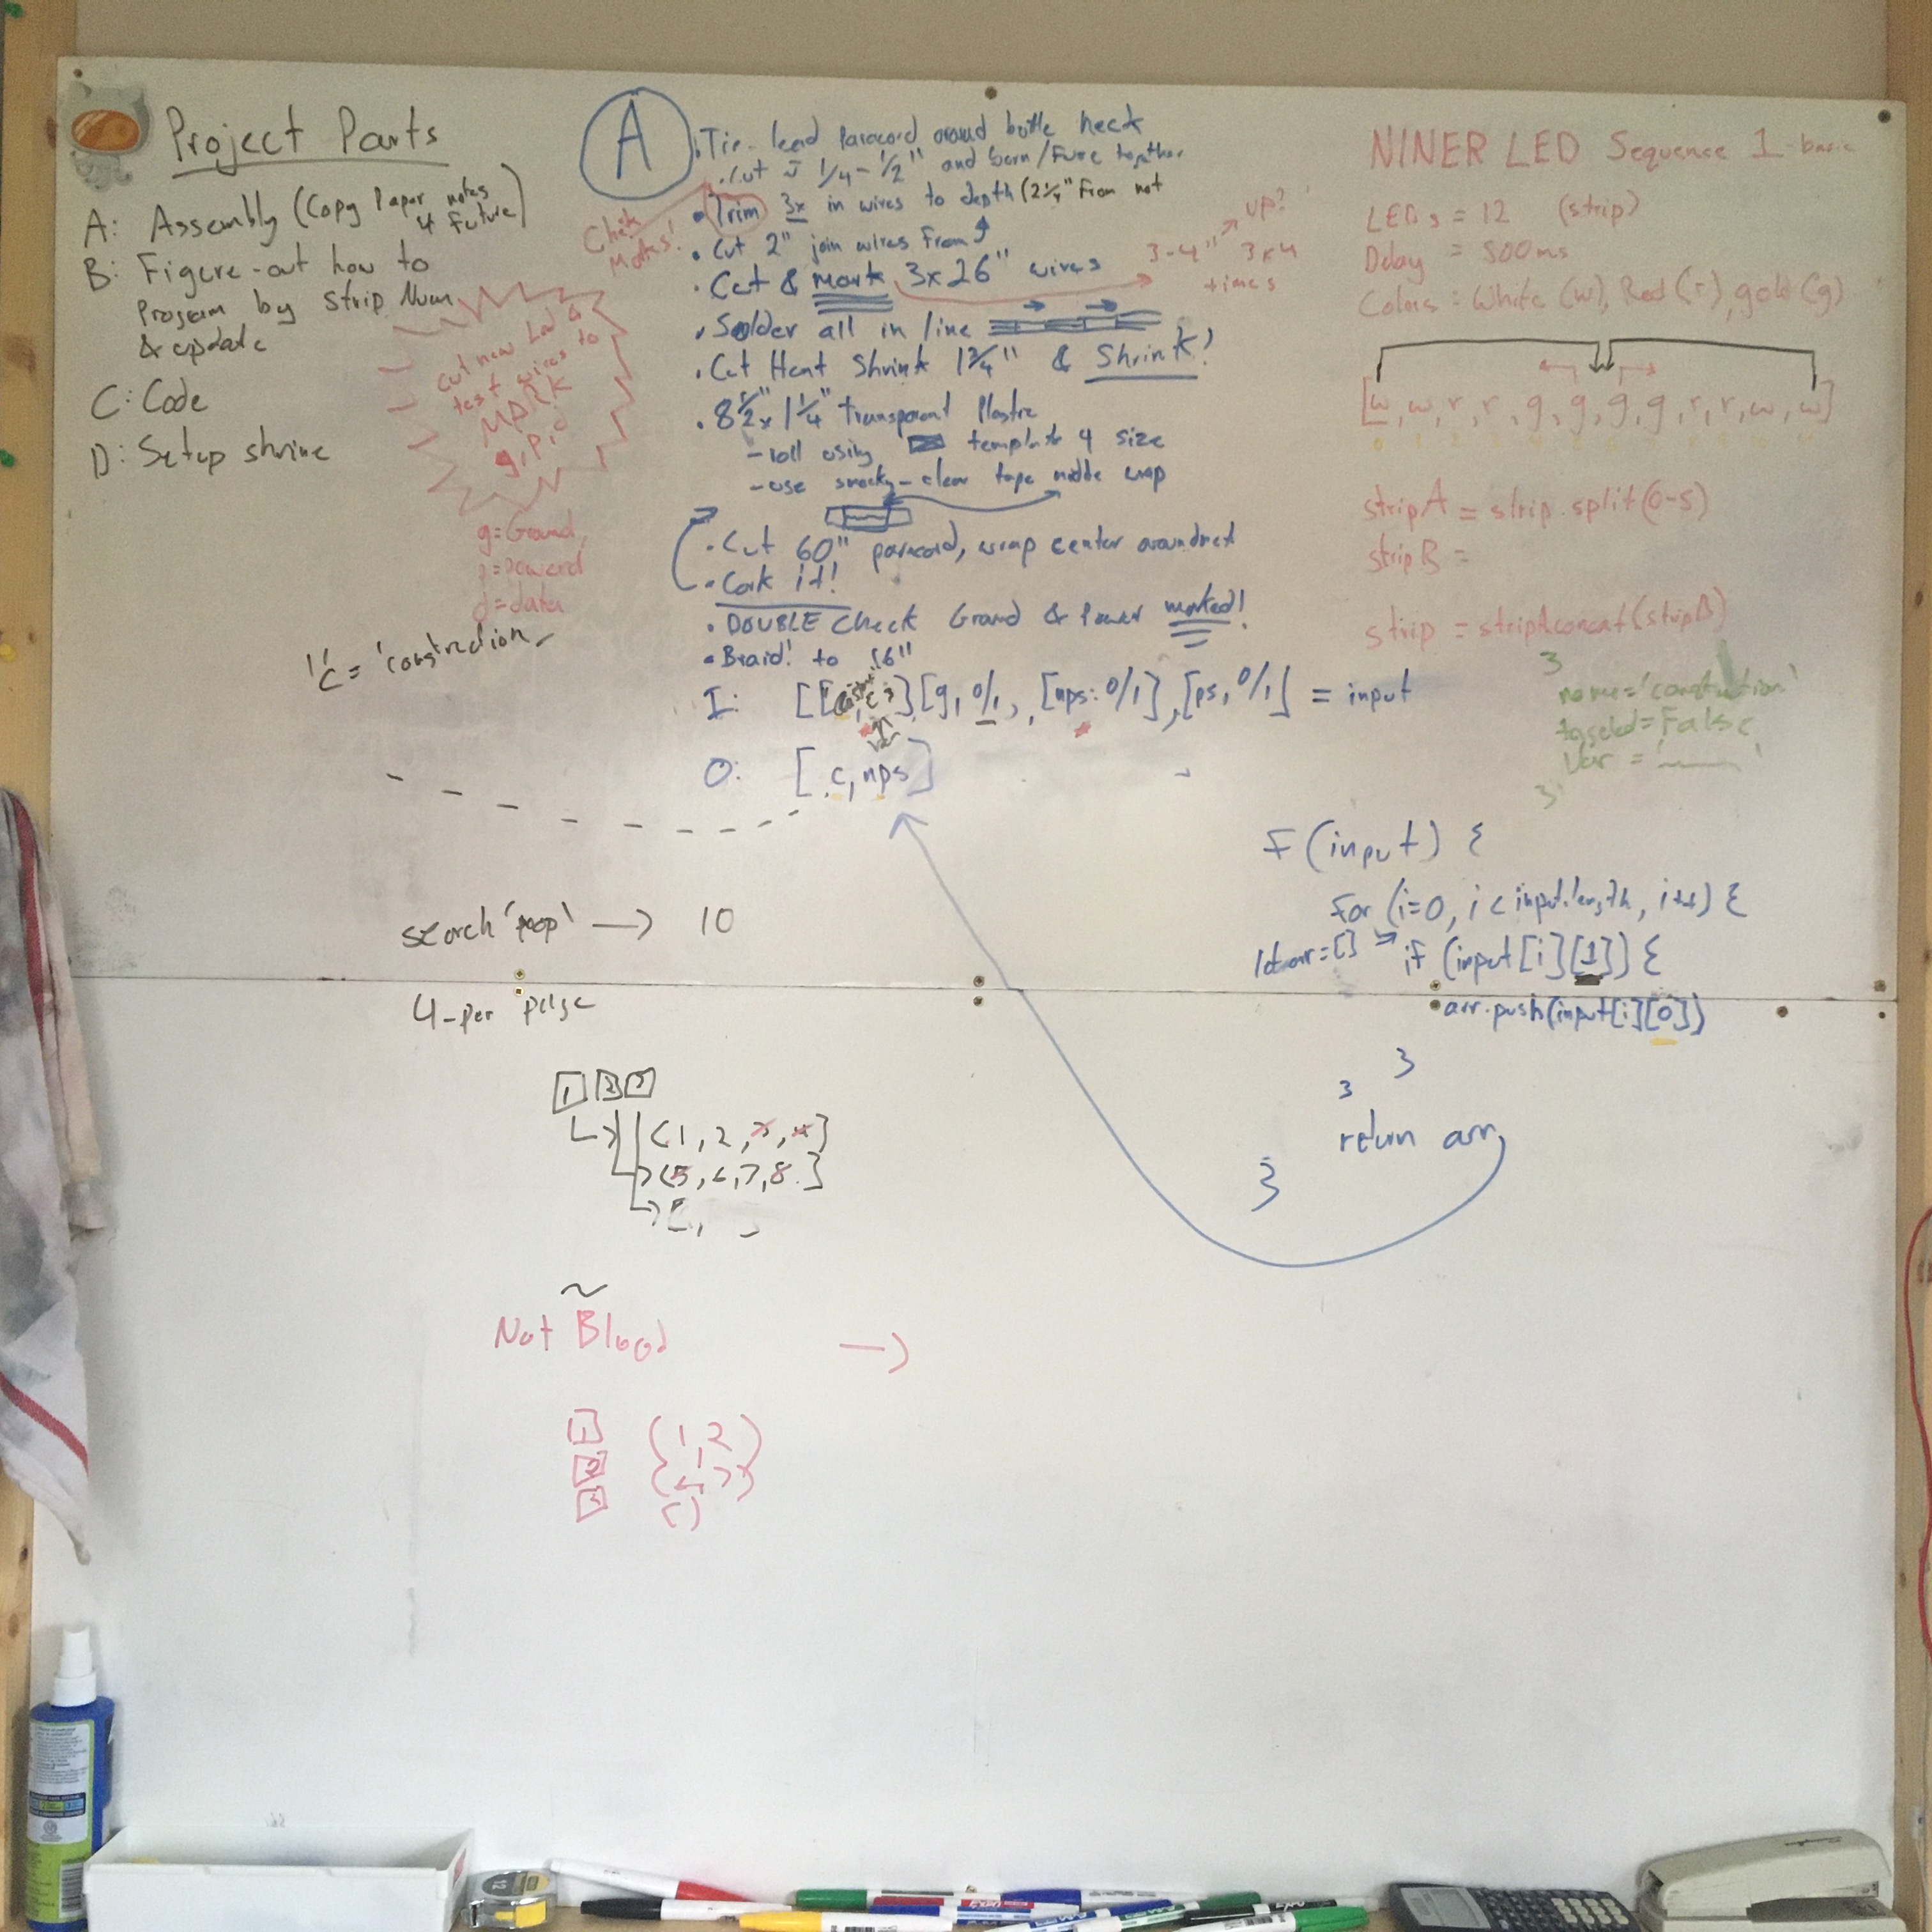 Project Parts
A: Assembly (Copy Paper notes
& Future)
B: Figure-out how to
Program by Strip Num
& update
C: Code
D: Setup shrine
cut new Led &
test wires to
MARK
g, p, d
g=Ground,
p=powerd
d=data
'c'= 'construction
Check
Notes!
A
Tie lead Paracord around bottle neck
Cut ≈ 1/4 - 1/2" and burn/Fuse together
• Trim 3x in wires to depth (2 1/4" from not
• Cut 2" join wires from
• Cut & mark 3x26" wires
3-4" 3x4
times
up?
• Solder all in line
• Cut Heat Shrink 1 3/4" & Shrink!
• 8 1/2" x 1 1/4" transparent Plastic
- roll using template 4 size
- use clear tape middle wrap
• Cut 60" paracord, wrap center around
• Cork it!
• DOUBLE check Ground & Power marked!
• Braid! to 16"
I: [g, 0/1, [nps: 0/1], [ps, 0/1] = input
O: [c, nps]
NINER LED Sequence 1 - basic
LEDs = 12 (strip)
Delay = 500ms
Colors = White (w), Red (r), gold (g)
[w, w, r, r, g, g, g, g, r, r, w, w]
stripA = strip.split(0-5)
stripB =
strip = stripA.concat(stripB)
name='construction'
toggled=False
Var = '
F (input) {
for (i=0, i < input.length, i++) {
let arr=[] if (input[i][1]) {
arr.push(input[i][0])
}
}
return arr
}
search 'poop' → 10
4-per page
1 2 3
(1, 2, 3, 4]
(5, 6, 7, 8]
[,
~
Not Blood →
1 (1, 2)
2
3 ( )